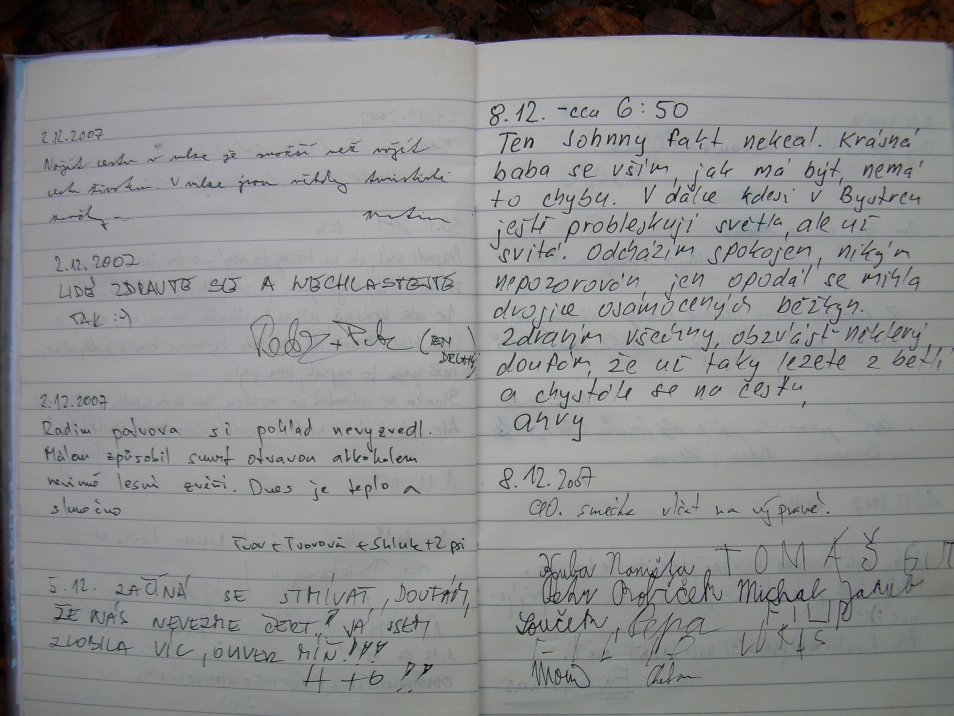 2.12.2007
Najít cestu v mlze je snažší než najít
cestu životem. V mlze jsou někdy turistické
značky
2.12.2007
LIDÉ ZDRAVTE SE A NECHLASTEJTE
TAK :-)
2.12.2007
Radim patvora si pohled nevyzvedl.
Málem způsobil smrt otravou alkoholem
nevinné lesní zvěři. Dnes je teplo a
slunečno
Tvor + Tvorová + Shluk + 2 psi
5.12. ZAČÍNÁ SE STMÍVAT, DOUFÁM,
ŽE NÁS NEVEZME ČERT, JÁ JSEM
ZLOBILA VÍC, OLIVER MÍŇ!!!
H + O !!
8.12. -cca 6:50
Ten Johnny fakt nekecal. Krásná
baba se vším, jak má být, nemá
to chybu. V dálce kdesi v Bystrcu
ještě probleskují světla, ale už
svítá. Odcházím spokojen, nikým
nepozorován, jen opodál se mihla
dvojice osamocených běžkyn.
Zdravím všechny, obzvlášť některý,
doufám, že už taky lezete z betlí
a chystáte se na cestu,
ahvy
8.12.2007
smečka vlčat na výpravě.
Kuba TOMÁŠ
Michal Jakub
Souček, Pepa FILIP
FILIP LUKÁŠ